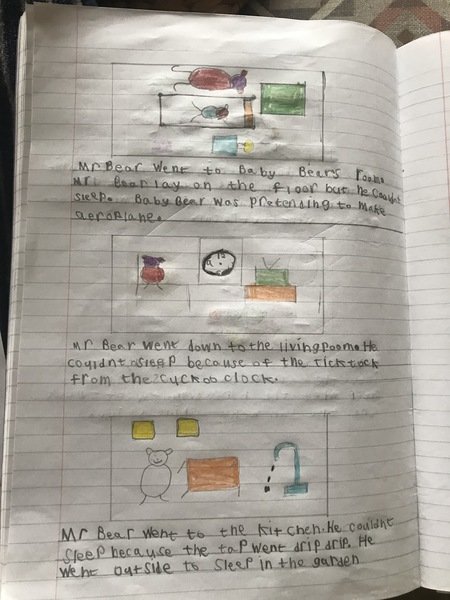 Mr Bear went to Baby Bears room.
Mr. Bear lay on the floor but he couldnt
sleep. Baby Bear was pretending to make
aeroplane.
Mr Bear went down to the livingroom.He
couldnt sleep because of the ticktock
from the cuckoo clock.
Mr Bear went to the kitchen.He couldnt
sleep because the tap went drip drip. He
went outside to sleep in the garden